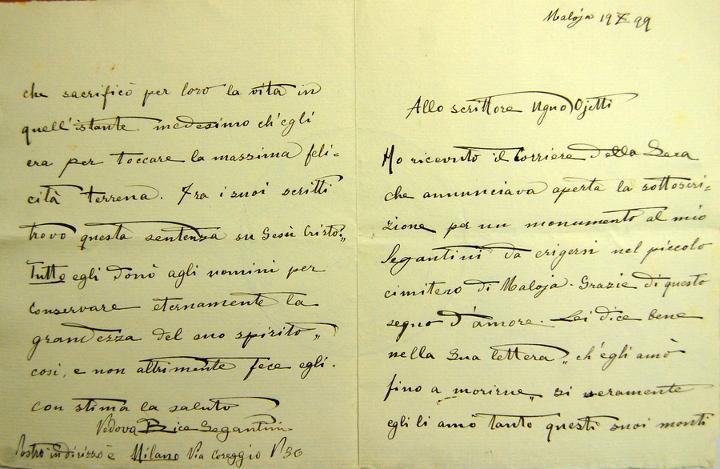 Maloja 19 X 99
Allo scrittore Ugno Ojetti
Ho ricevuto il Corriere della Sera
che annunciava aperta la sottoscri-
zione per un monumento al mio
Segantini da erigersi nel piccolo
cimitero di Maloja. Grazie di questo
segno d'amore. Lei dice bene
nella sua lettera „ ch'egli amò
fino a morirne „ si veramente
egli li amò tanto questi suoi monti
che sacrificò per loro la vita in
quell'istante medesimo ch'egli
era per toccare la massima feli-
cità terrena. Fra i suoi scritti
trovo questa sentenza su Gesù Cristo: „
Tutto egli donò agli uomini per
conservare eternamente la
grandezza del suo spirito „
così, e non altrimente fece egli.
con stima la saluto
Vedova Bice Segantini
Nostro indirizzo è Milano Via Coreggio N 30